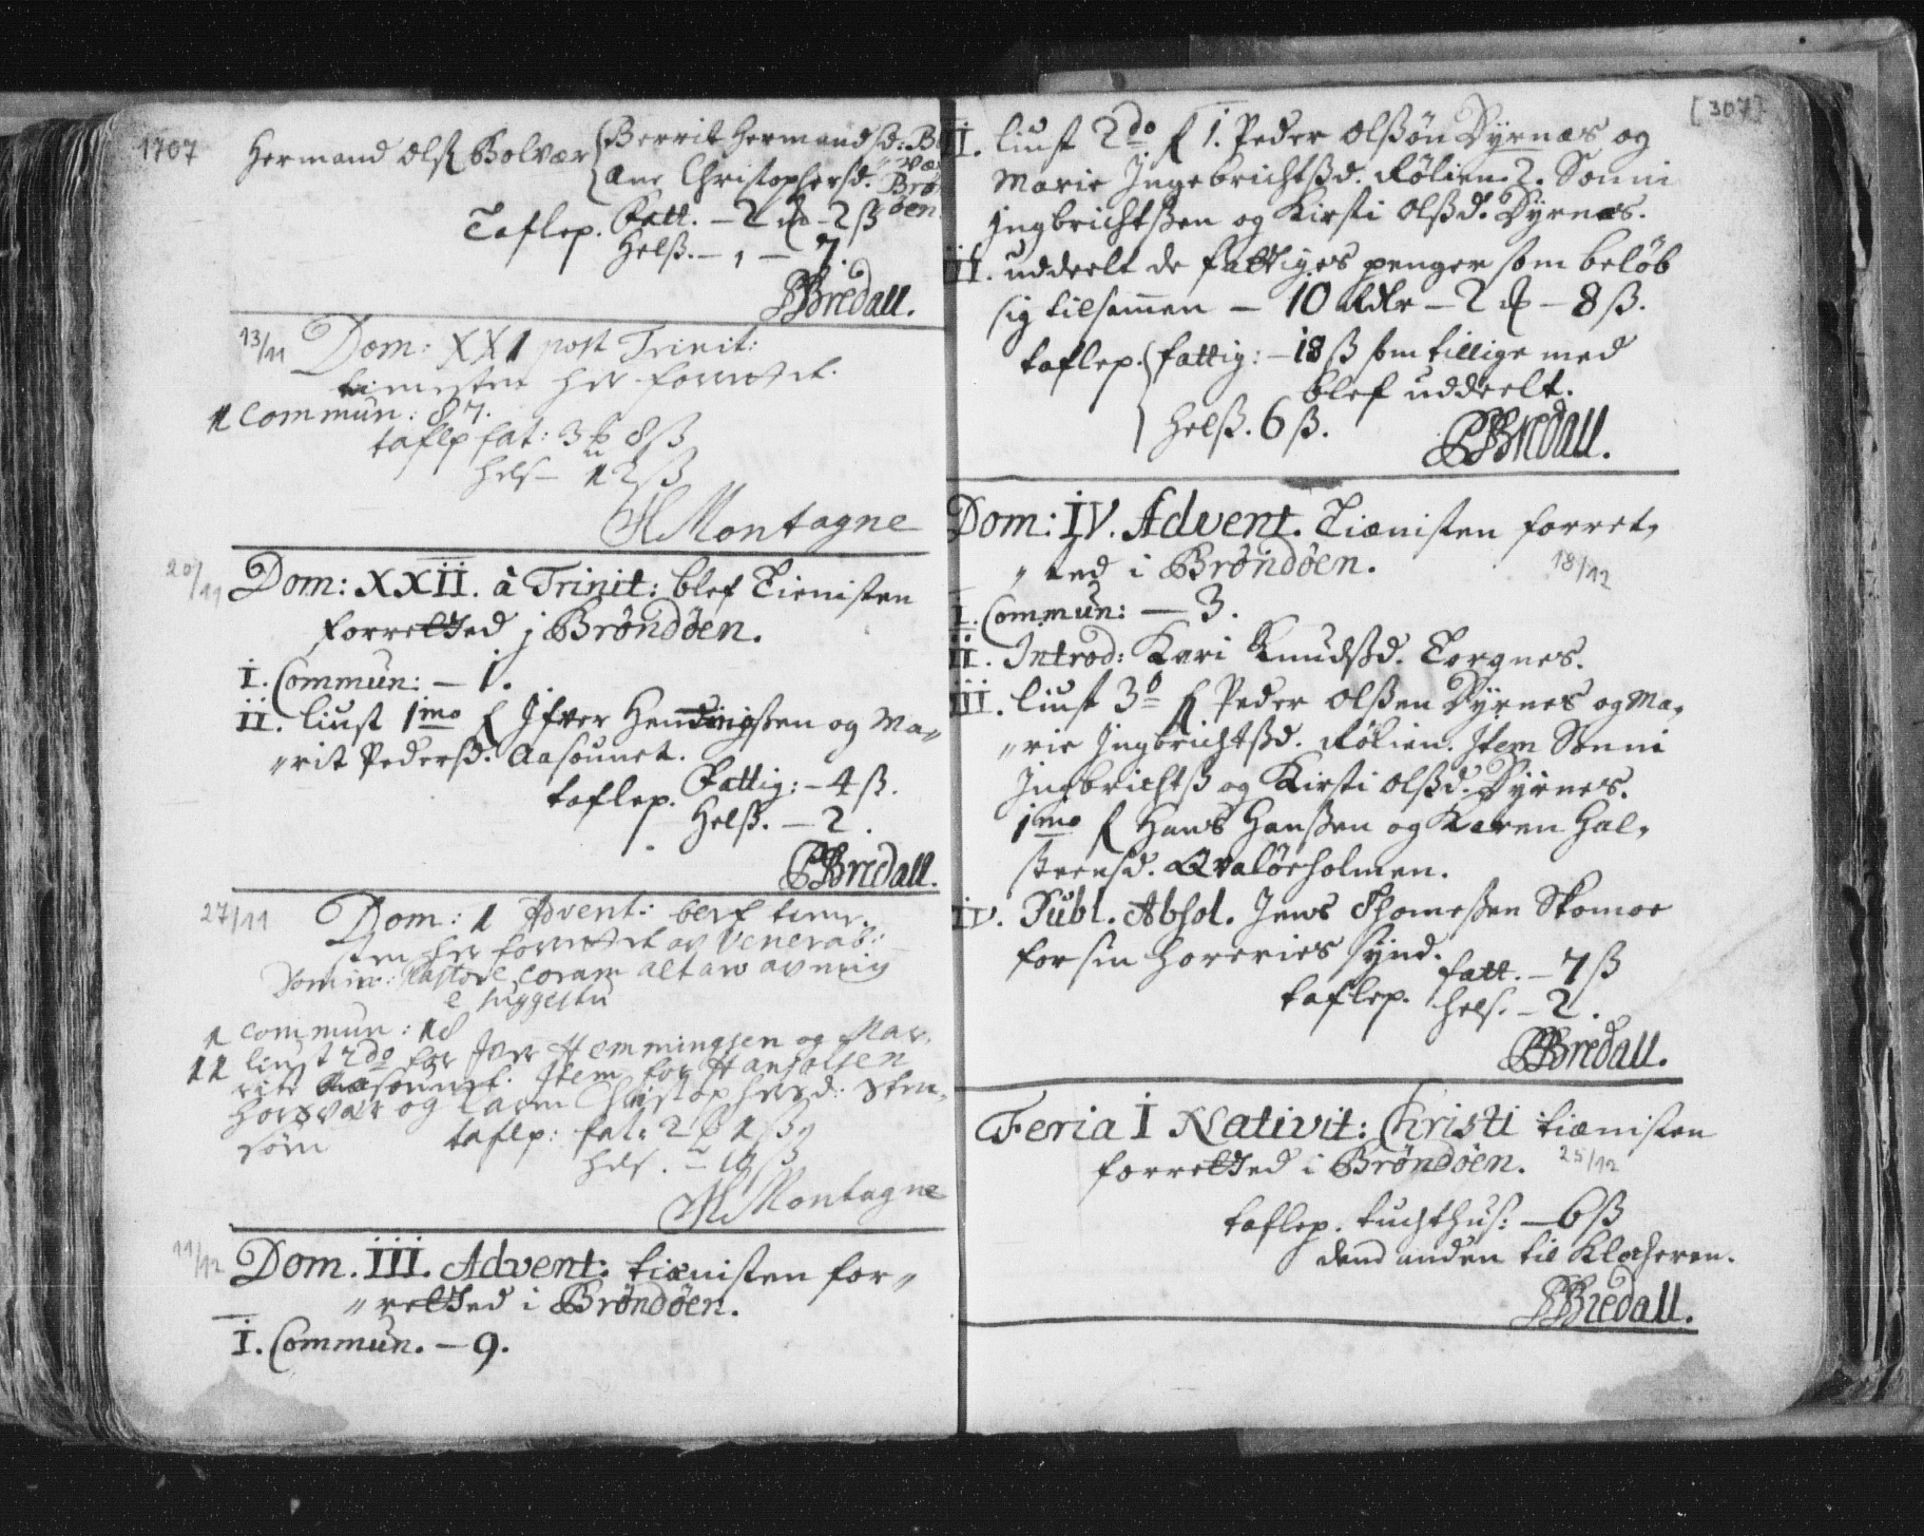 1707
Hermand Olss Bolvær { Berrit Hermandsd: Bol
vær
Ane Christophersd. Brøn
öen
Taflep. Fatt. – 2 – 2 ß
Helß. – 1 – 7.
Bredall.
13/11 Dom: XXI post Trinit:
tienesten her forrettet.
1 Commun: 87.
taflp fat: 3 8 ß
hels – 12 ß
Montagne
20/11 Dom: XXII. à Trinit: blef Tienisten
forretted j Bröndöen.
I. Commun: – 1.
II. liust 1mo f Ifver Hemmingßen og Ma„
„rit Pedersd. Aasounet.
taflep. Fattig: – 4 ß.
Helß. – 2.
Bredall.
27/11 Dom: 1 Advent: blef tiene„
sten her forrettet av Venerab:
Domino: Pastore coram altari av mig
e suggestu
1 Commun: 18
11 liust 2do for Iver Hemmingsen og Mar„
rit Aasounet. Item for Hans Olsen
Horsvær og Karen Christophersd: Sten„
søm
taflp: fat: 2 1 ß
hels. – 19 ß
Montagne
11/12 Dom. III. Advent: tienisten for„
„retted i Bröndöen.
I. Commun. – 9.
[307]
II. liust 2do f 1. Peder Olßön Dyrnæs og
Marie Ingebrichtßd. Rölien. 2. Sonni
Ingbrichtßen og Kirsti Olßd. Dyrnæs.
III. uddeelt de fattiges penger som belöb
sig tilsamen – 10 Rdlr – 2 – 8 ß.
taflep. { fattig: – 18 ß som tillige med
blef uddeelt.
helß. 6 ß.
Bredall.
Dom: IV. Advent. Tienisten forret„
„ted i Bröndöen.
18/12
I. Commun: – 3.
II. Introd: Kari Knudßd. Torgnes.
III. liust 3o f Peder Olßen Dyrnes og Ma„
„rie Ingbrichtßd. Rölien. Item Sonni
Ingbrichtß og Kirsti Olßd. Dyrnes.
1mo f Hans Hanßen og Karen Hal„
steensd. Qvalöeholmen.
IV. Publ. Absol. Jens Thomeßen Skomoe
for sin horeries synd.
taflep. fatt. – 7 ß
hels. – 2.
Bredall.
Feria I Nativit: Christi tienisten
forretted i Bröndöen. 25/12
taflep. tuchthus: – 6 ß
dend anden til Klocheren.
Bredall.